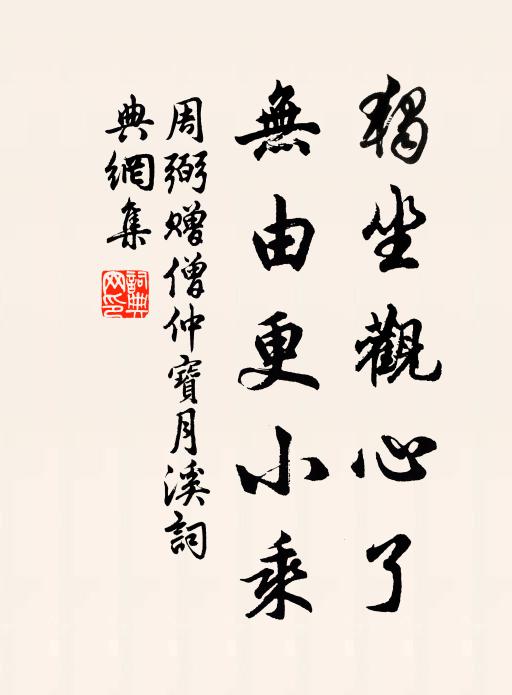 獨坐觀心了
無由更小乘
周弼贈僧仲寶月溪詞
典網集
詞典網印